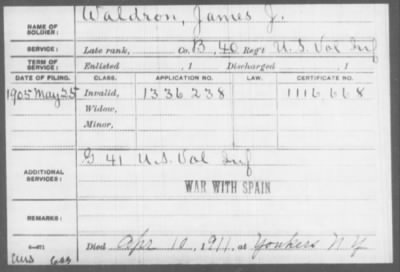 NAME OF SOLDIER: Waldron, James J.
SERVICE: Late rank, Co. B, 40 Reg't U.S. Vol Inf
TERM OF SERVICE: Enlisted , 1 Discharged , 1
DATE OF FILING. CLASS. APPLICATION NO. LAW. CERTIFICATE NO.
1905 May 25 Invalid, 1336238 1116668
Widow,
Minor,
ADDITIONAL SERVICES: G 41 U.S. Vol Inf
WAR WITH SPAIN
REMARKS:
Died Apr 10 1911, at Yonkers N Y